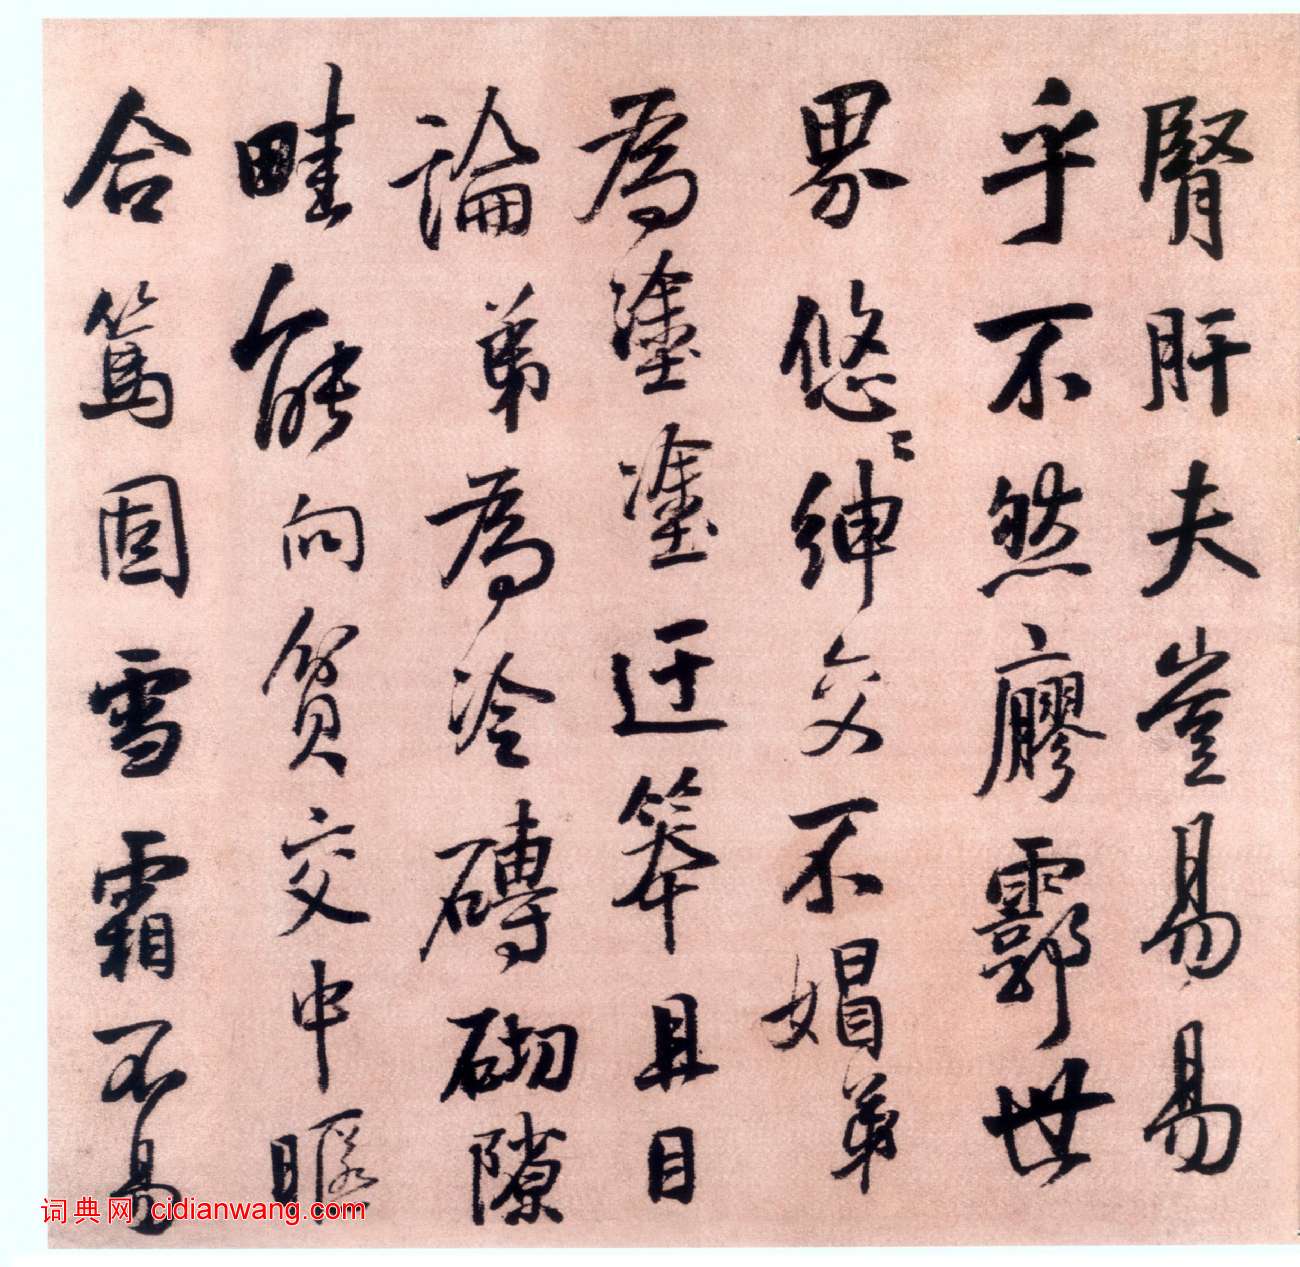 腎肝夫豈易易
乎不然廫霩世
界悠〻紳交不媢弟
為塗塗迂笨且目
論弟為冷磚砌隙
畦能向貧交中
合篤固雪霜不易
词典网 cidianwang.com